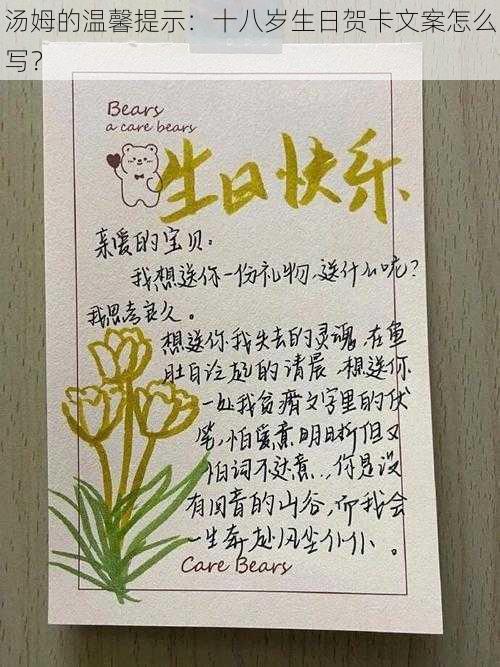 汤姆的温馨提示：十八岁生日贺卡文案怎么
写？
Bears
a care bears
生日快乐
亲爱的宝贝：
我想送你一份礼物，送什么呢？
我思考良久。
想送你我失去的灵魂，在鱼
肚白泛起的清晨，想送你
一处我贫瘠文字里的伏
笔，怕爱意明目
怕词不达意..，你是没
有回音的山谷，而我会
一生奔赴
Care Bears